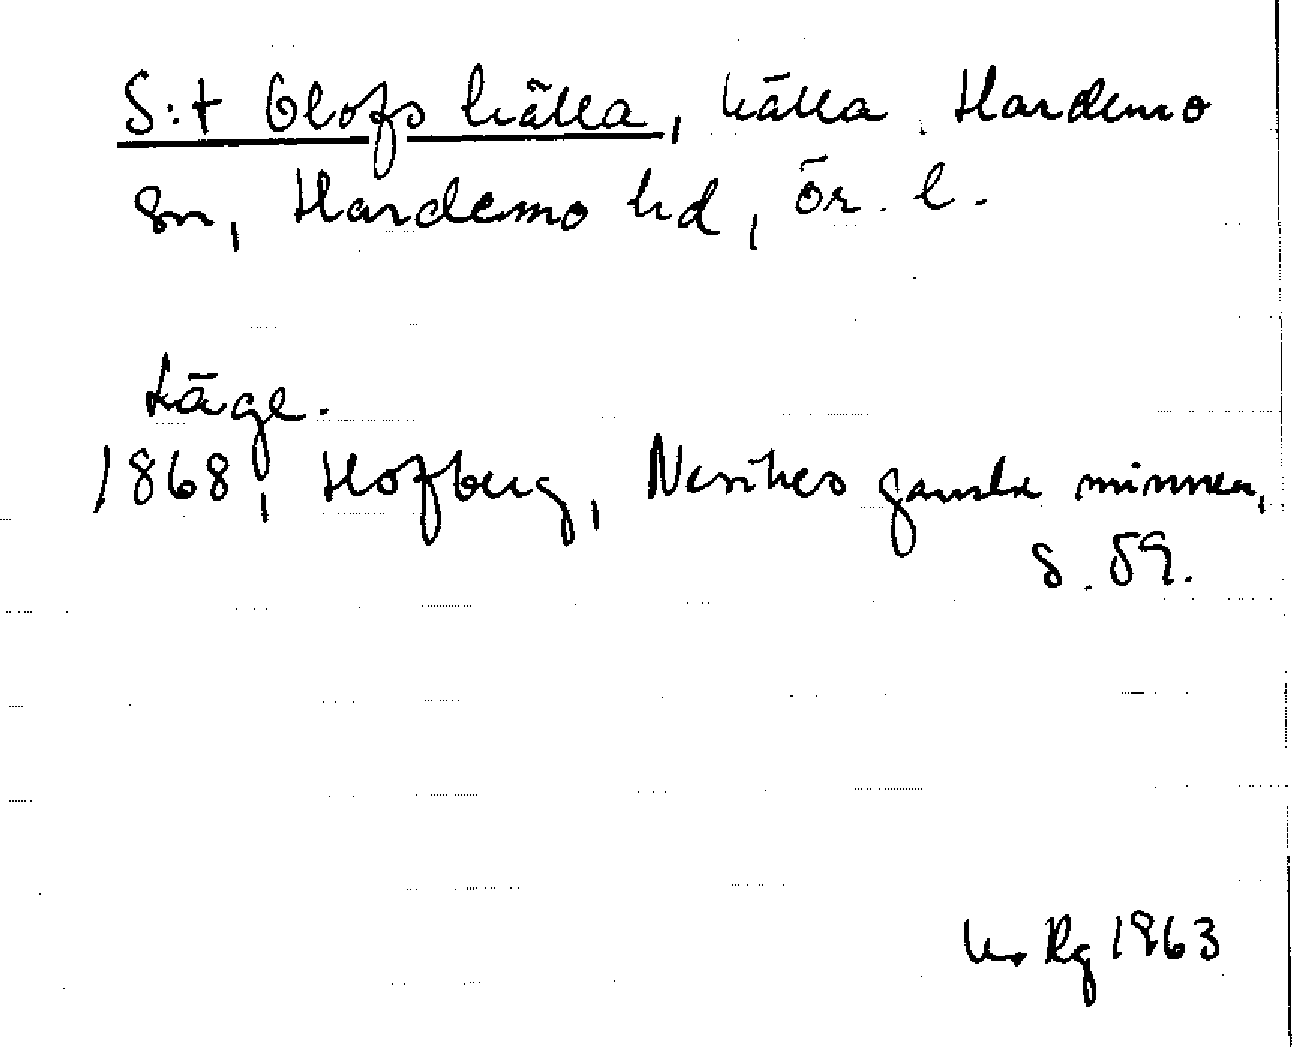 S:t Olofs källa, källa Hardemo
sn, Hardemo hd, ör. l.
Läge.
1868, Hofberg, Nerikes gamla minnen,
s. 59.
Rg 1963